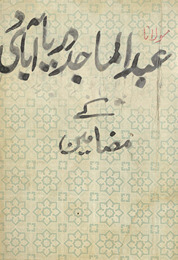 مولانا
عبدالماجد دریاآبادی
کے
مضامین